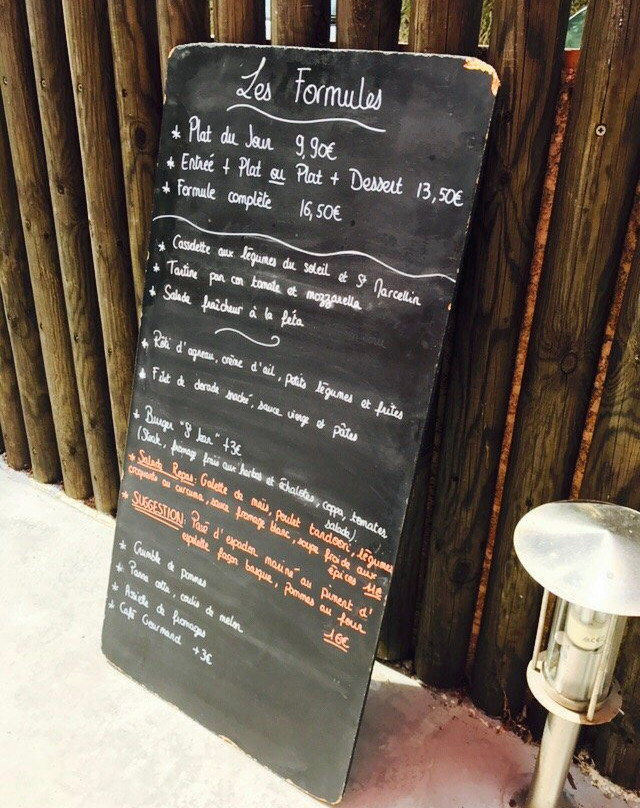 Les Formules
* Plat du Jour 9,90€
* Entrée + Plat ou Plat + Dessert 13,50€
* Formule complète 16,50€
* Cassolette aux légumes du soleil et St Marcellin
* Tartine pan con tomate et mozzarella
* Salade fraîcheur à la féta
* Rôti d'agneau, crème d'ail, petits légumes et frites
* Filet de dorade snacké, sauce vierge et pâtes
* Burger "St Jean" +3€
(Steak, fromage frais aux herbes et échalotes, coppa, tomates
salade).
* Salade Repas: Galette de maïs, poulet tandoori, légumes
croquants au curcuma, sauce fromage blanc, soupe froide aux
épices 11€
* SUGGESTION: Pavé d'espadon mariné au piment d'
espelette façon basque, pommes au four
16€
* Crumble de pommes
* Panna cotta, coulis de melon
* Assiette de fromages
* Café Gourmand +3€